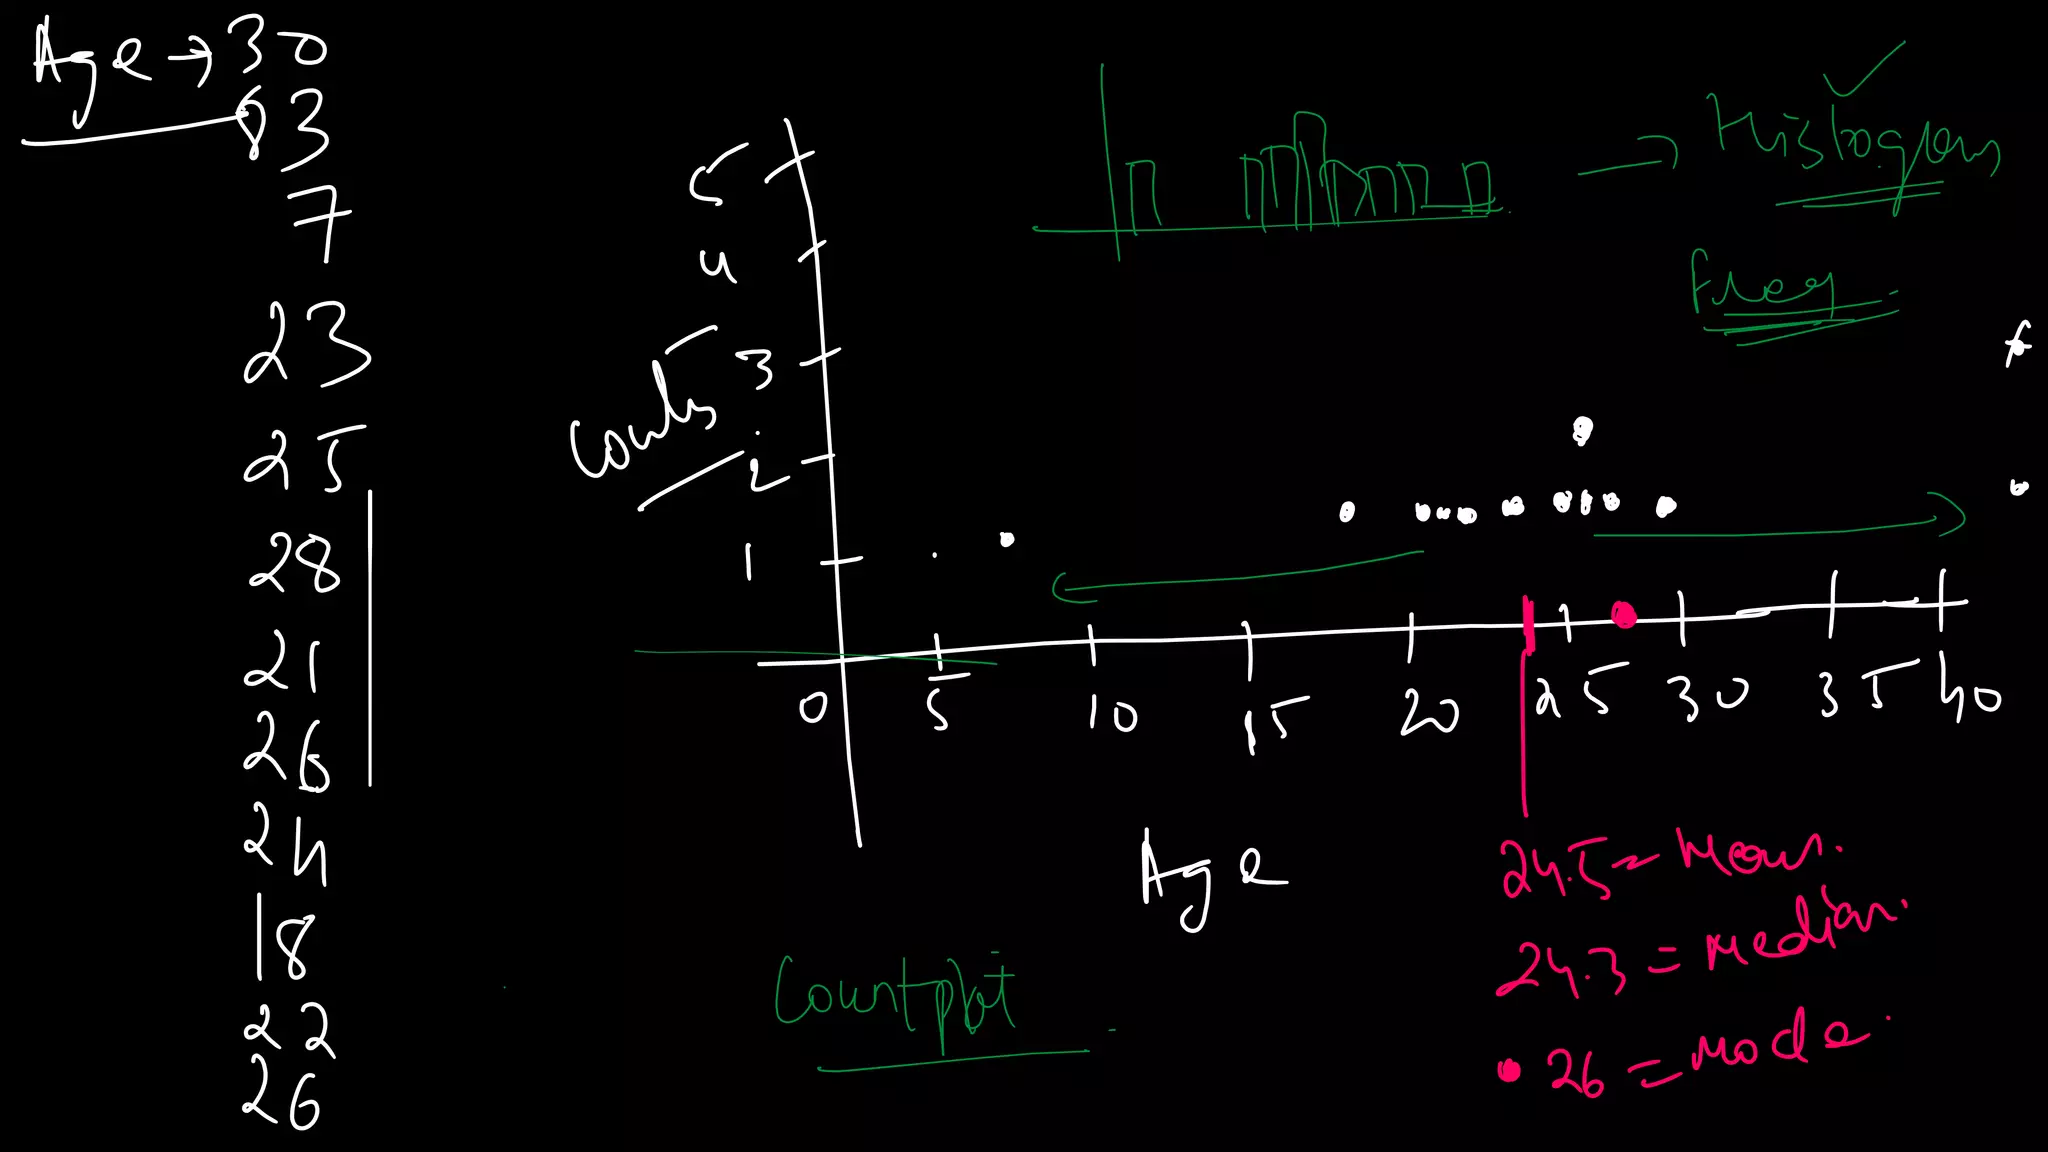 Age → 30
83
7
23
25
28
21
26
24
18
22
26
5
4
3
2
1
Counts
0 5 10 15 20 25 30 35 40
Age
Countplot
→ Histogram
Freq
24.5 = Mean.
24.3 = Median.
26 = Mode.